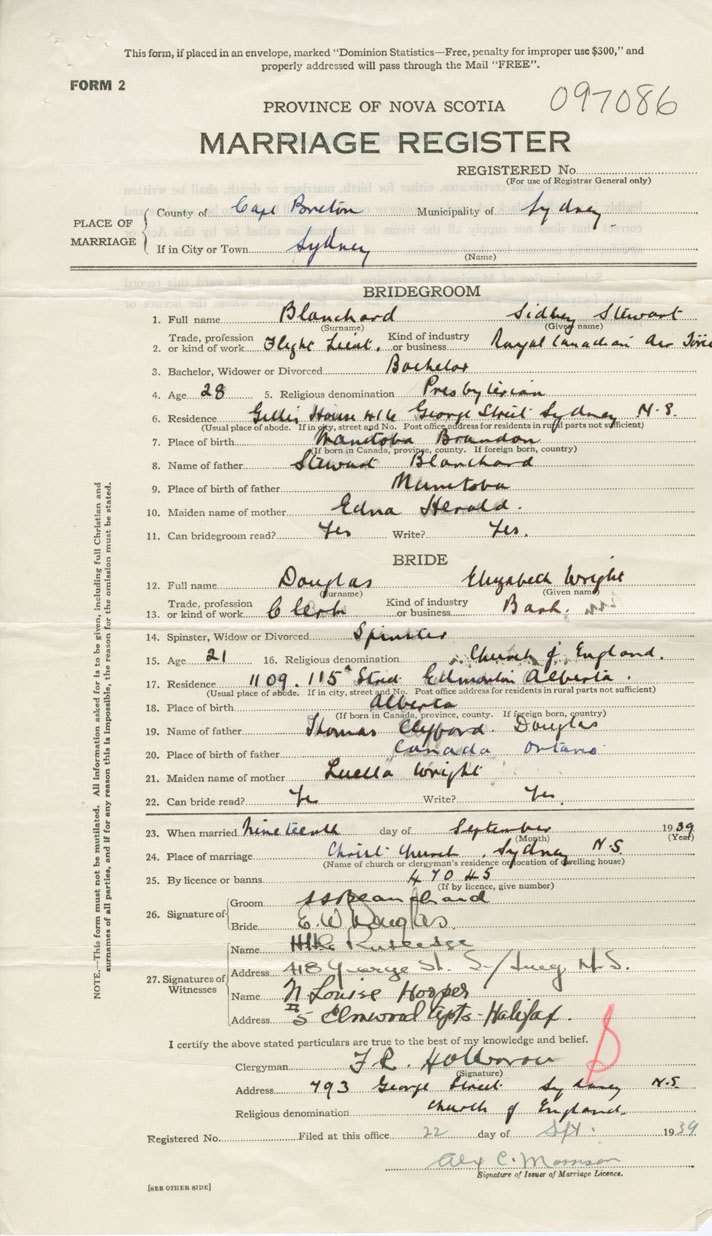 This form, if placed in an envelope, marked "Dominion Statistics—Free, penalty for improper use $300," and
properly addressed will pass through the Mail "FREE".
FORM 2
PROVINCE OF NOVA SCOTIA 097086
MARRIAGE REGISTER
REGISTERED No.
(For use of Registrar General only)
PLACE OF MARRIAGE
County of Cape Breton Municipality of Sydney
If in City or Town Sydney
(Name)
BRIDEGROOM
1. Full name Blanchard Sidney Stewart
(Surname) (Given name)
2. Trade, profession or kind of work Flight Lieut. Kind of industry or business Royal Canadian Air Force
3. Bachelor, Widower or Divorced Bachelor
4. Age 28 5. Religious denomination Presbyterian
6. Residence Gillis House 416 George Street Sydney N.S.
(Usual place of abode. If in city, street and No. Post office address for residents in rural parts not sufficient)
7. Place of birth Manitoba Brandon
(If born in Canada, province, county. If foreign born, country)
8. Name of father Stewart Blanchard
9. Place of birth of father Manitoba
10. Maiden name of mother Edna Herald.
11. Can bridegroom read? Yes Write? Yes.
BRIDE
12. Full name Douglas Elizabeth Wright
(Surname) (Given name)
13. Trade, profession or kind of work Clerk Kind of industry or business Bank.
14. Spinster, Widow or Divorced Spinster
15. Age 21 16. Religious denomination Church of England.
17. Residence 1109. 115th Street Edmonton Alberta.
(Usual place of abode. If in city, street and No. Post office address for residents in rural parts not sufficient)
18. Place of birth Alberta
(If born in Canada, province, county. If foreign born, country)
19. Name of father Thomas Clifford Douglas
20. Place of birth of father Canada Ontario
21. Maiden name of mother Luella Wright
22. Can bride read? Yes Write? Yes.
23. When married Nineteenth day of September 1939
(Month) (Year)
24. Place of marriage Christ Church, Sydney N.S.
(Name of church or clergyman's residence or location of dwelling house)
25. By licence or banns 47045
(If by licence, give number)
26. Signature of
Groom SS Blanchard
Bride E. W. Douglas.
27. Signatures of Witnesses
Name Rutledge
Address 418 George St. Sydney N.S.
Name N Louise Hooper
Address 5 Elmwood Apts - Halifax.
I certify the above stated particulars are true to the best of my knowledge and belief.
Clergyman
(Signature)
Address 793 George Street Sydney N.S.
Religious denomination Church of England.
Registered No. Filed at this office 22 day of Sept. 1939
Alex C. Morrison
Signature of Issuer of Marriage Licence.
[SEE OTHER SIDE]
NOTE.—This form must not be mutilated. All information asked for is to be given, including full Christian and
surnames of all parties, and if for any reason this is impossible, the reason for the omission must be stated.